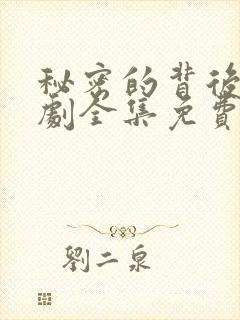 秘密的背後
劇全集免費
劉二泉